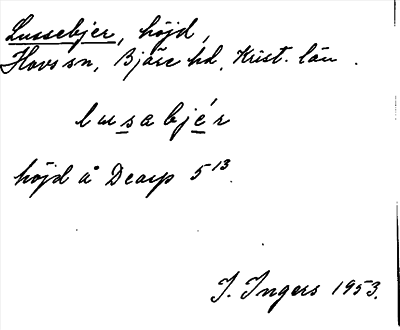 Lussebjer, höjd,
Hovs sn, Bjäre hd, Krist. län.
lusabjér
höjd å Dearp 5¹³.
I. Ingers 1953.